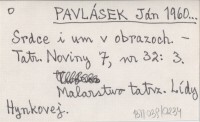 PAVLÁSEK Ján 1960...
Srdce i um v obrazoch. -
Tatr. Noviny 7, nr 32: 3.
Malarstwo tatrz. Lúdy
Hynkovej.